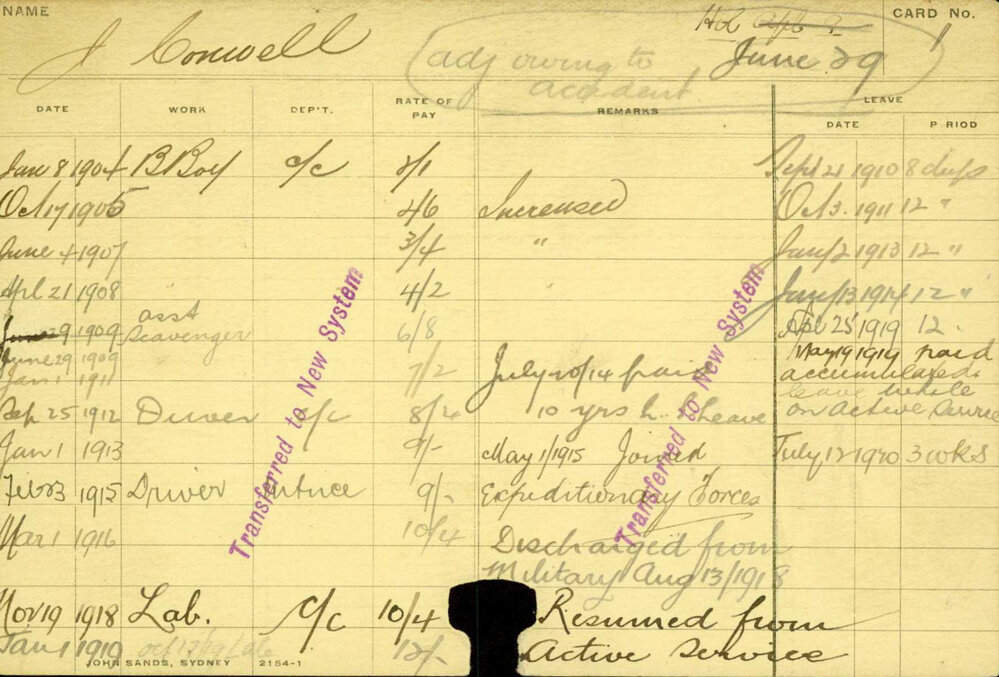 NAME
J Conwell
Hol
CARD No.
1
June 29
adj owing to
accident
DATE WORK DEP'T. RATE OF PAY REMARKS LEAVE
DATE P RIOD
Jan 8 1904 B Boy c/c 2/1 Sept 21 1910 8 days
Oct 17 1905 2/6 Increased Oct 3 1911 12 "
June 4 1907 3/4 " Jany 2 1913 12 "
Apl 21 1908 4/2 " Jany 13 1914 12 "
June 29 1909 asst Scavenger 6/8 Apl 25 1919 12
June 29 1909 May 19 1919 paid
Jan 1 1911 7/2 July 20/14 paid accumulated
leave while
Sep 25 1912 Driver c/c 8/4 10 yrs leave on active service
Jan 1 1913 9/- May 1/1915 Joined July 12 1920 3 wks
Feb 23 1915 Driver 9/- Expeditionary Forces
Mar 1 1916 10/4 Discharged from
Military Aug 13/1918
Nov 19 1918 Lab. c/c 10/4 Resumed from
Jan 1 1919 12/- Active Service
Transferred to New System
Transferred to New System
JOHN SANDS, SYDNEY 2154-1